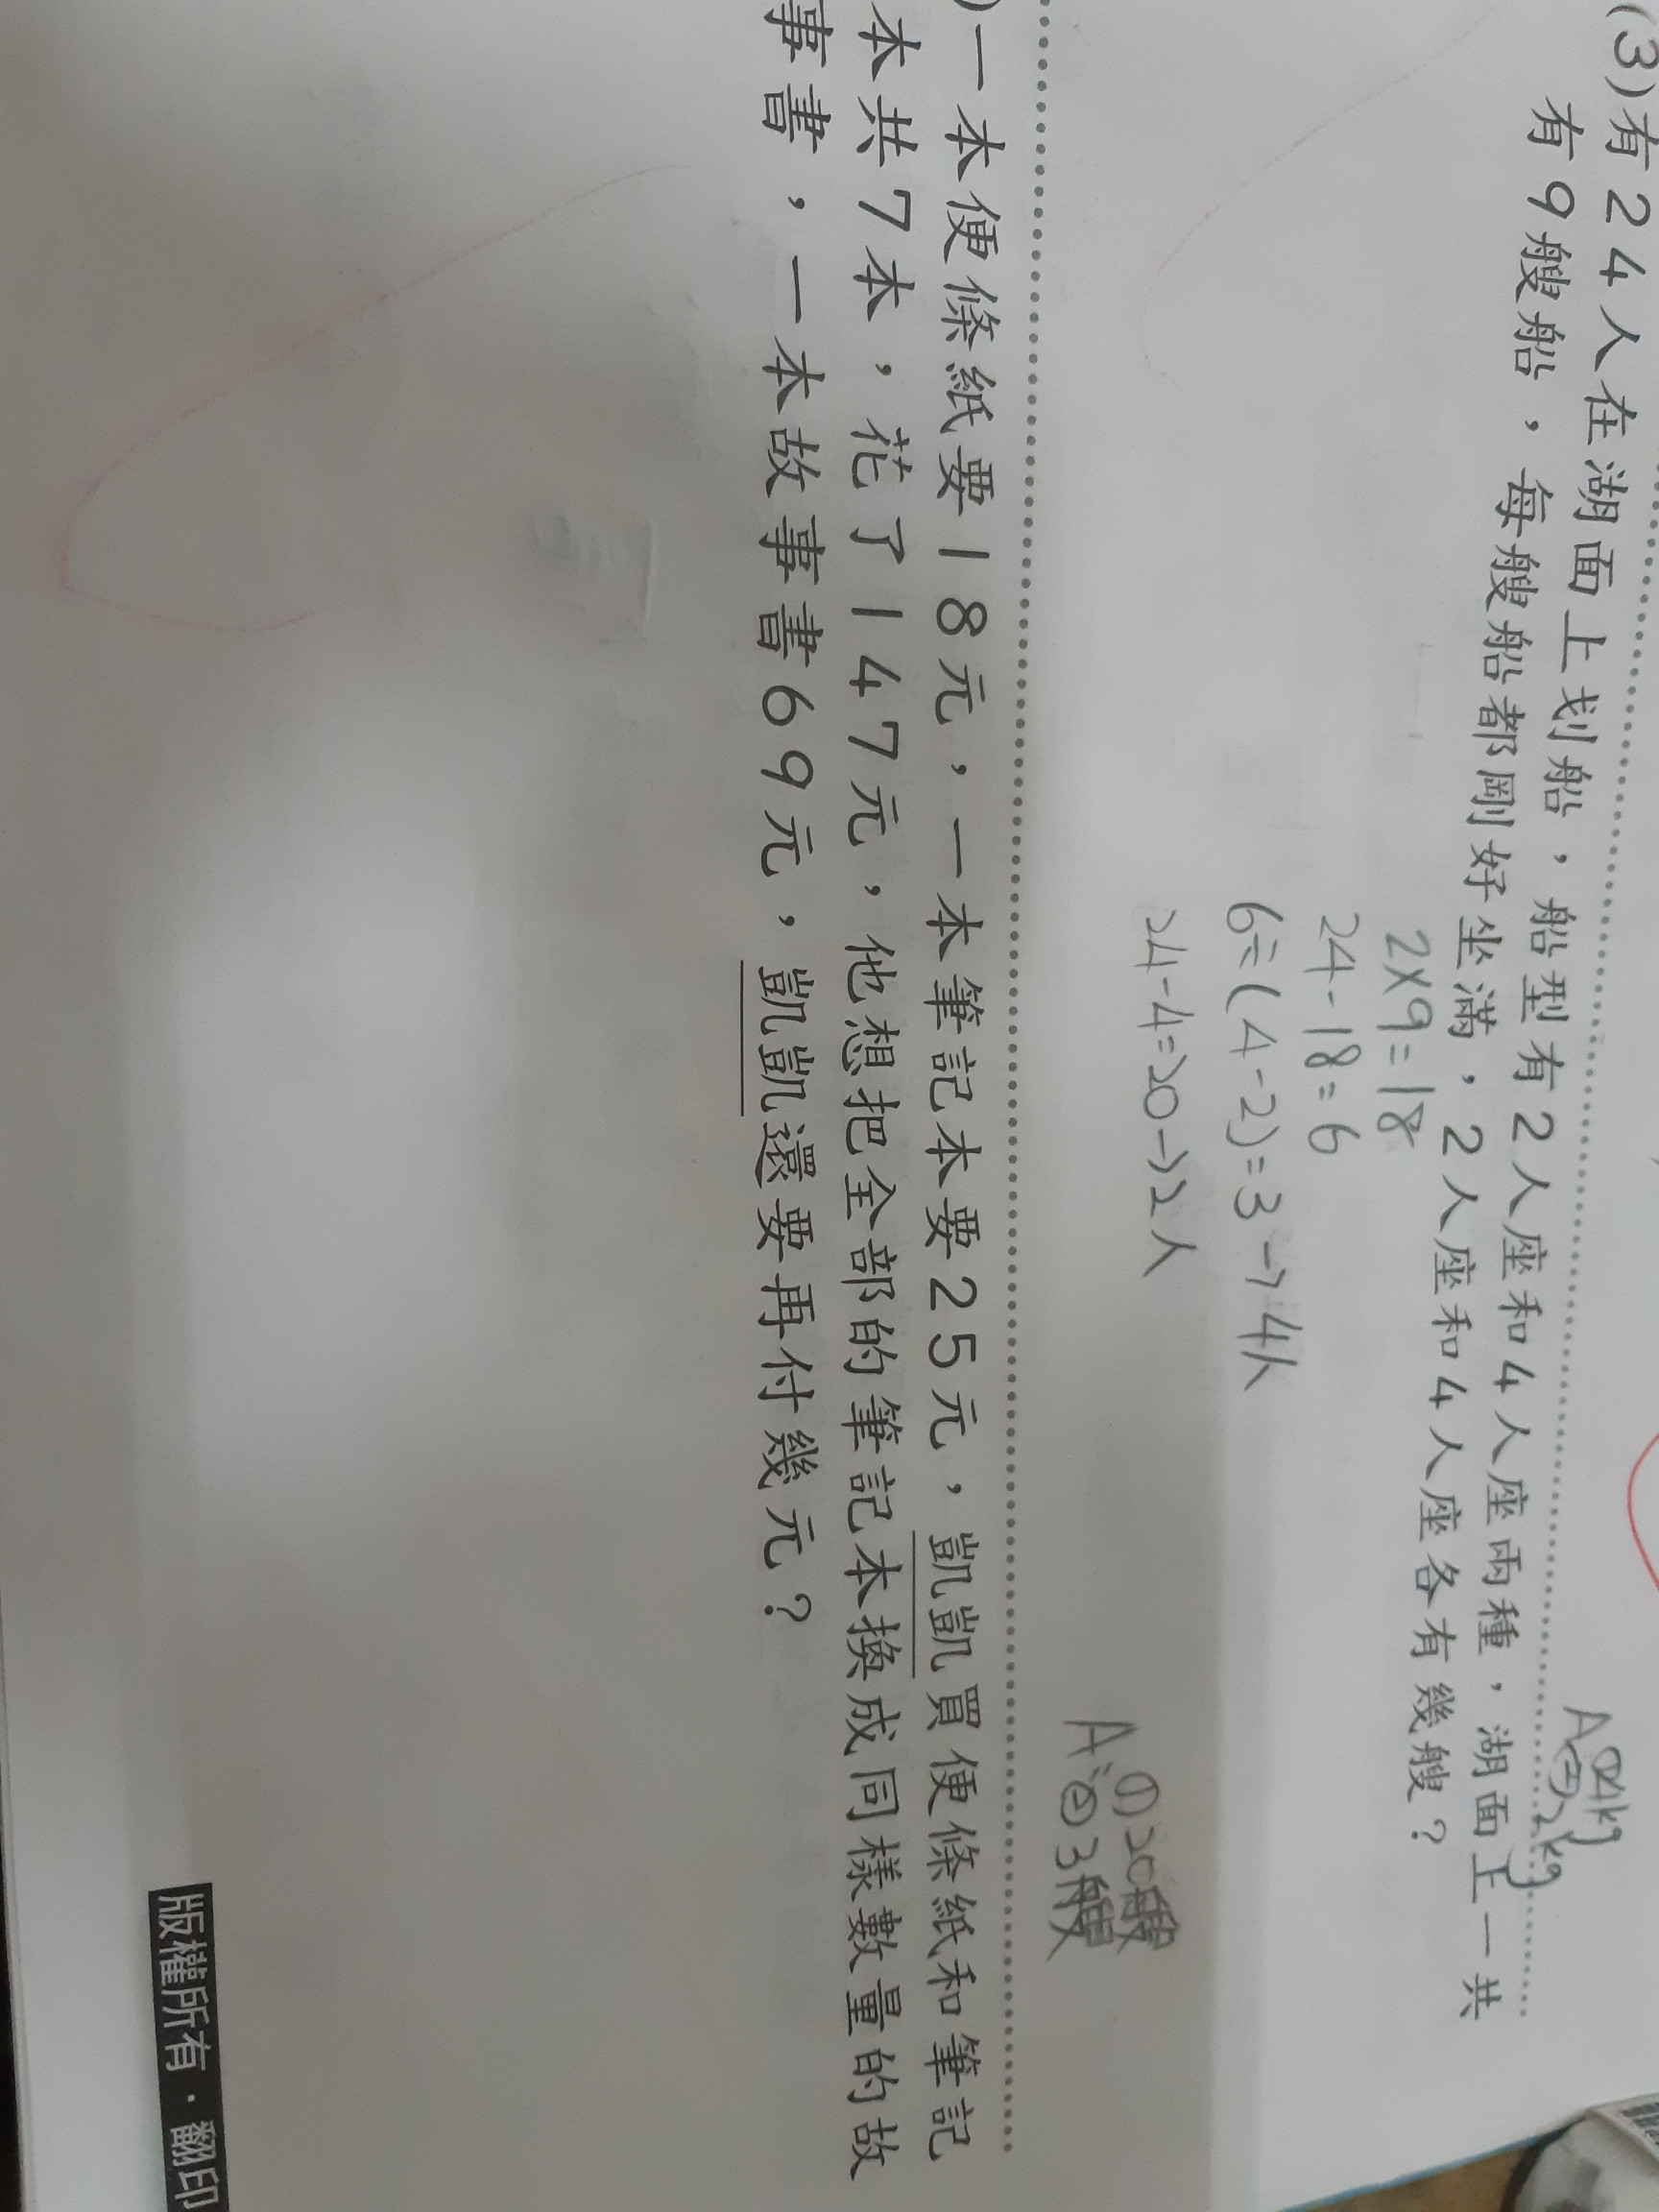 (3)有24人在湖面上划船，船型有2人座和4人座兩種，湖面上一共
有9艘船，每艘船都剛好坐滿，2人座和4人座各有幾艘？
2×9=18
24-18=6
6÷(4-2)=3→4人
24-4=20→2人
①20艘
A:②3艘
)一本便條紙要18元，一本筆記本要25元，凱凱買便條紙和筆記
本共7本，花了147元，他想把全部的筆記本換成同樣數量的故
事書，一本故事書69元，凱凱還要再付幾元？
版權所有·翻印